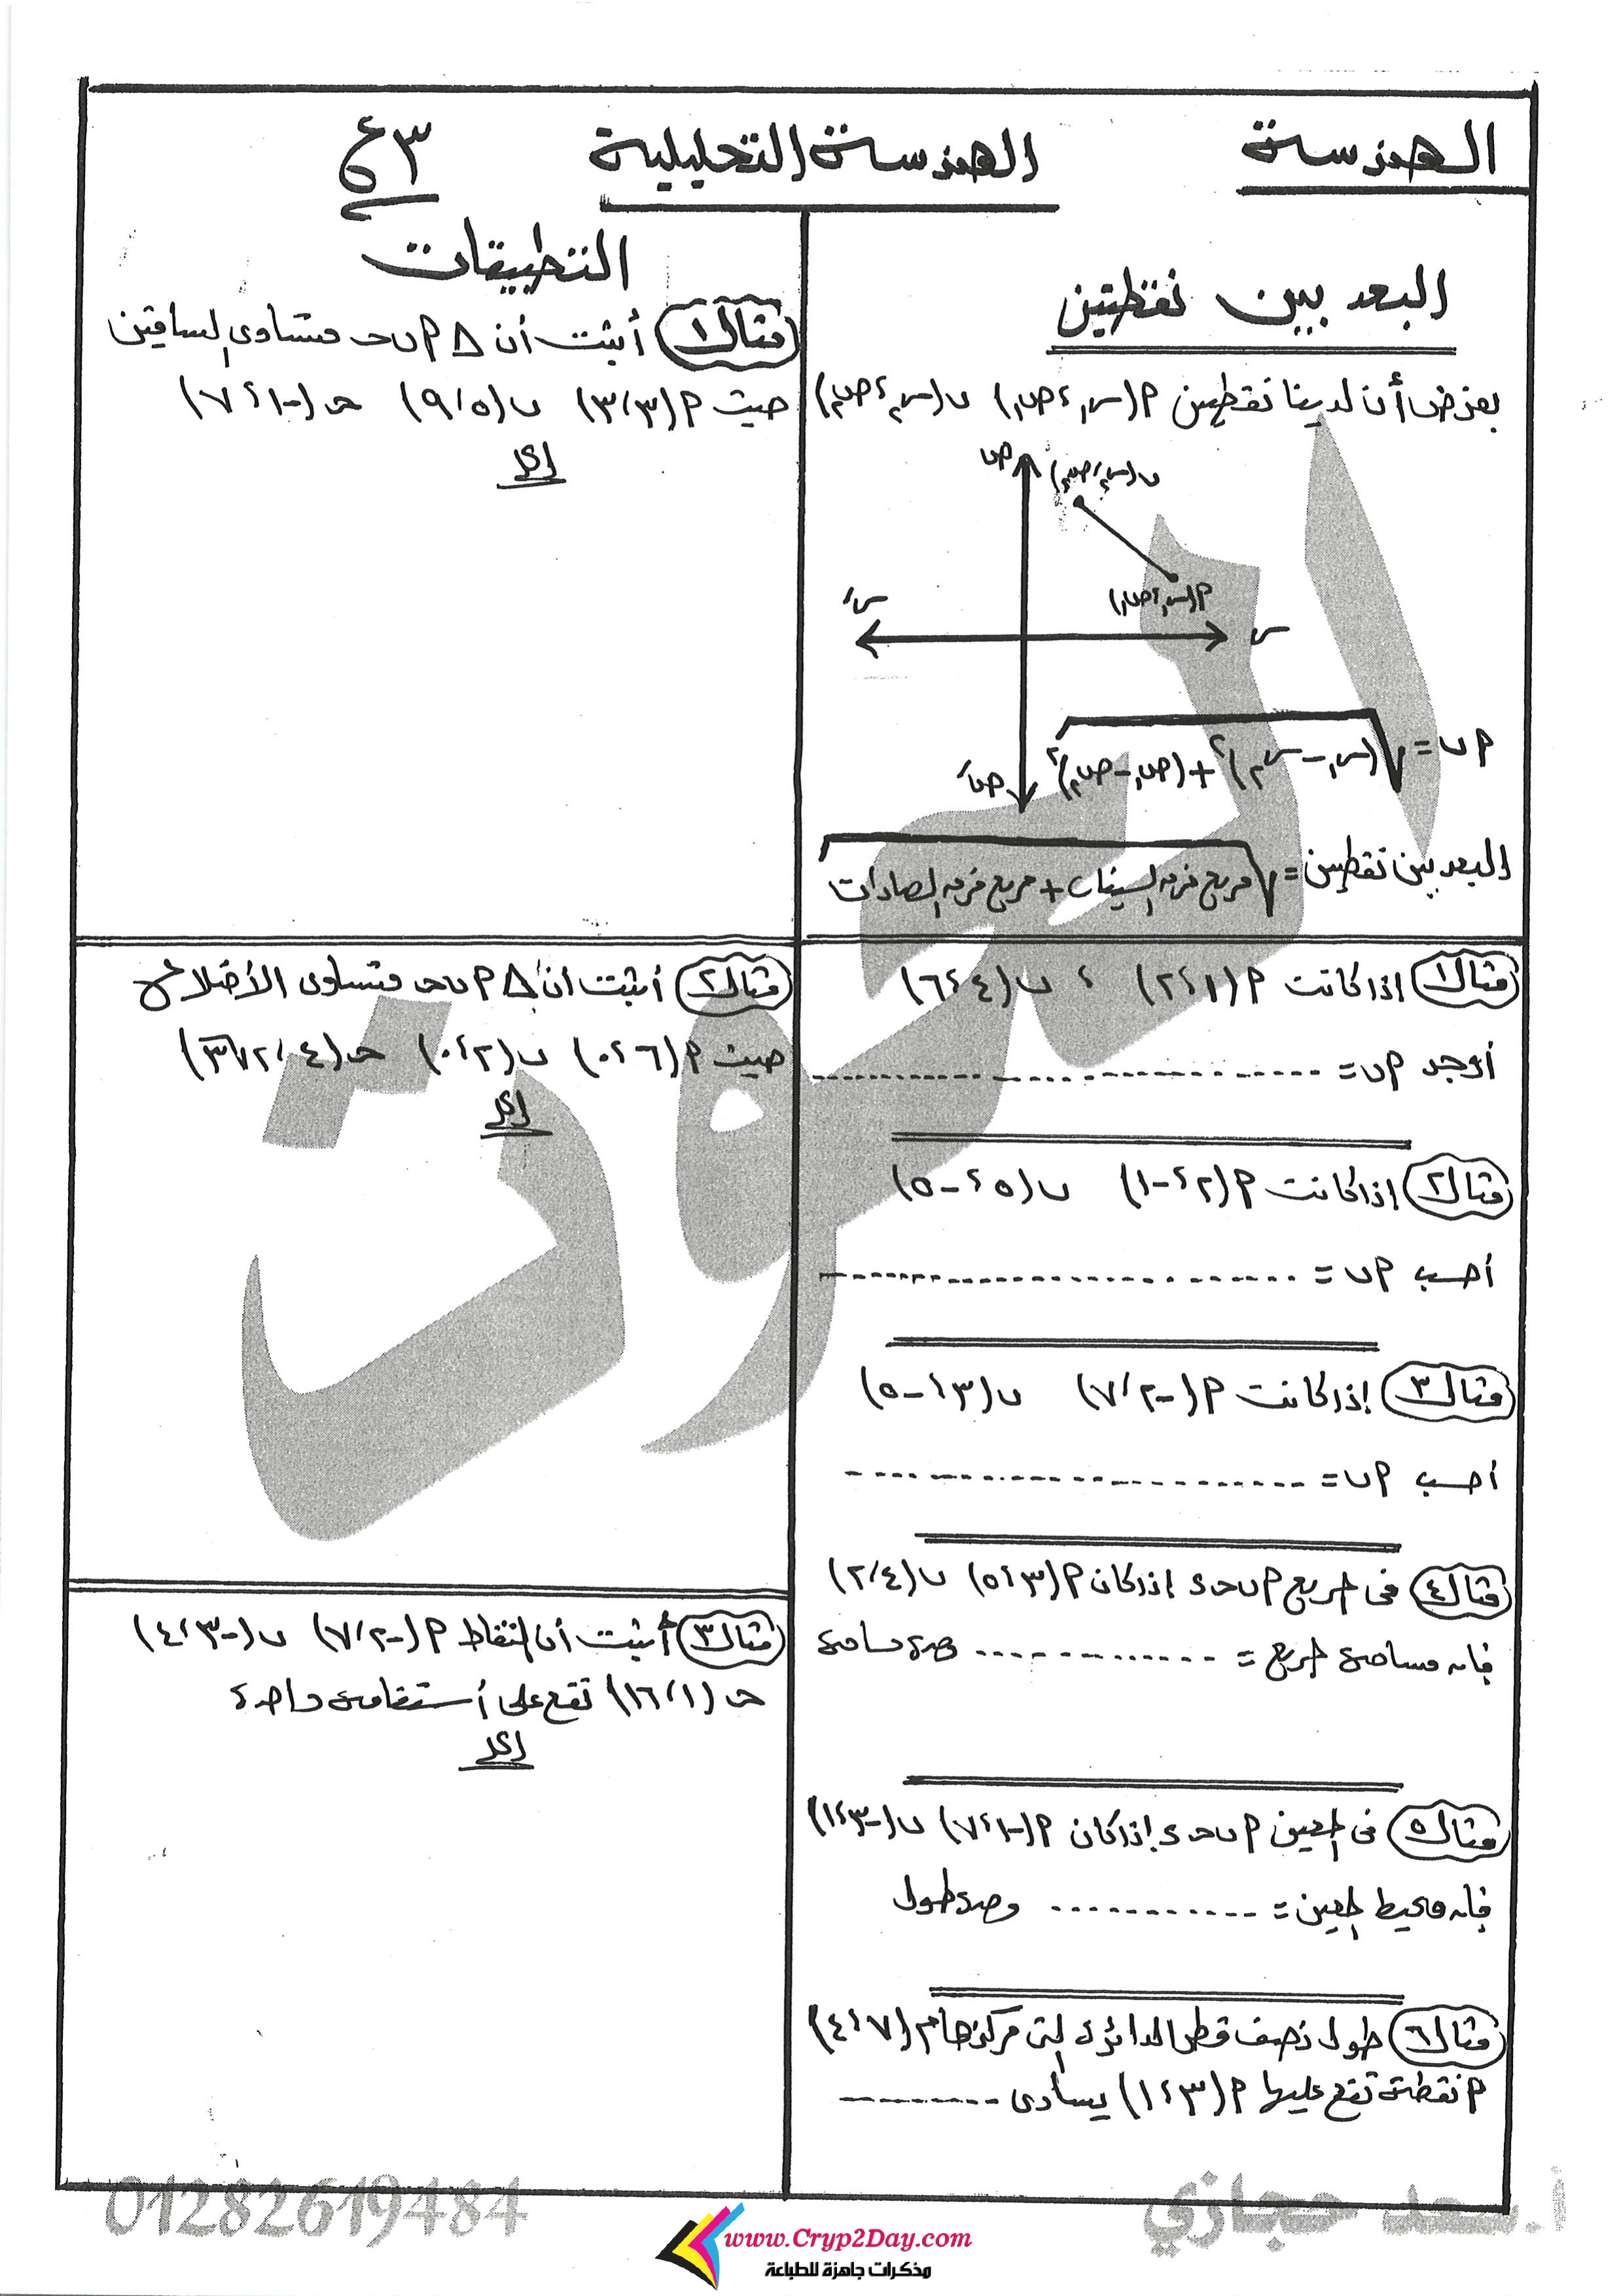 الهندسة
الهندسة التحليلية
٣ع
البعد بين نقطتين
بفرض أن لدينا نقطتين م(س١، ص١) ب(س٢، ص٢)
ص
ب(س٢، ص٢)
م(س١، ص١)
س
سَ
صَ
م ب = √(س١ - س٢)² + (ص١ - ص٢)²
البعد بين نقطتين = √مربع فرق السينات + مربع فرق الصادات
مثال ١ اذا كانت م(١، ٢) ، ب(٤، ٦)
أوجد م ب = ..............................
مثال ٢ إذا كانت م(٢، -١) ب(٥، -٥)
أحسب م ب = ..............................
مثال ٣ إذا كانت م(-٢، ٧) ب(٣، -٥)
احسب م ب = ..............................
مثال ٤ فى المربع م ب ح ء اذا كان م(٣، ٥) ب(٤، ٢)
فإن مساحة المربع = .............. وحدة مساحة
مثال ٥ فى المعين م ب ح ء إذا كان م(-١، ٧) ب(-٣، ١)
فإن محيط المعين = ............ وحدة طول
مثال ٦ طول نصف قطر الدائرة التى مركزها م(٧، ٤)
م نقطة تقع عليها م(٣، ١) يساوى ..........
التطبيقات
مثال ١ أثبت أن △ م ب ح متساوى الساقين
حيث م(٣، ٣) ب(٥، ٩) ح(-١، ٧)
الحل
مثال ٢ أثبت ان △ م ب ح متساوى الأضلاع
حيث م(٦، ٠) ب(٢، ٠) ح(٤، ٢√٣)
الحل
مثال ٣ أثبت أن النقاط م(-٢، ٧) ب(-٣، ٤)
ح(١، ١٦) تقع على أستقامة واحدة
الحل
أزهري
أ.سعد حجازي
01282619484
www.Cryp2Day.com
مذكرات جاهزة للطباعة